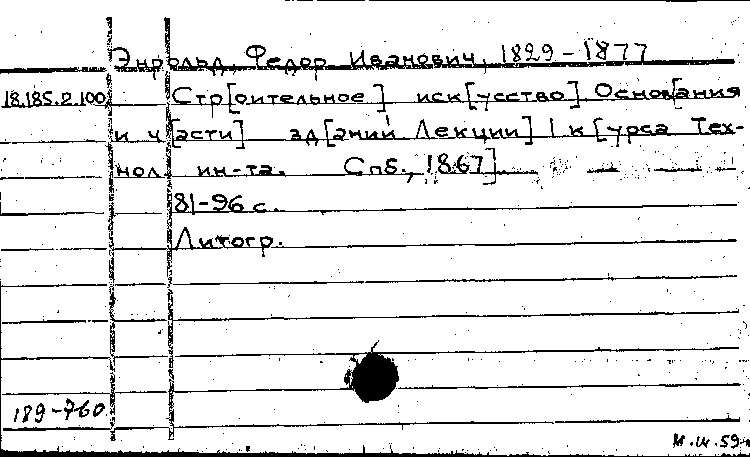 Энрольд, Федор Иванович, 1829-1877
18.185.2.100 Стр[оительное] иск[усство]. Основ[ания
и ч[асти] зд[аний Лекции] I к[урса Тех-
нол. ин-та. Спб., 1867]
81-96 с.
Литогр.
189-760
М.Ш.59